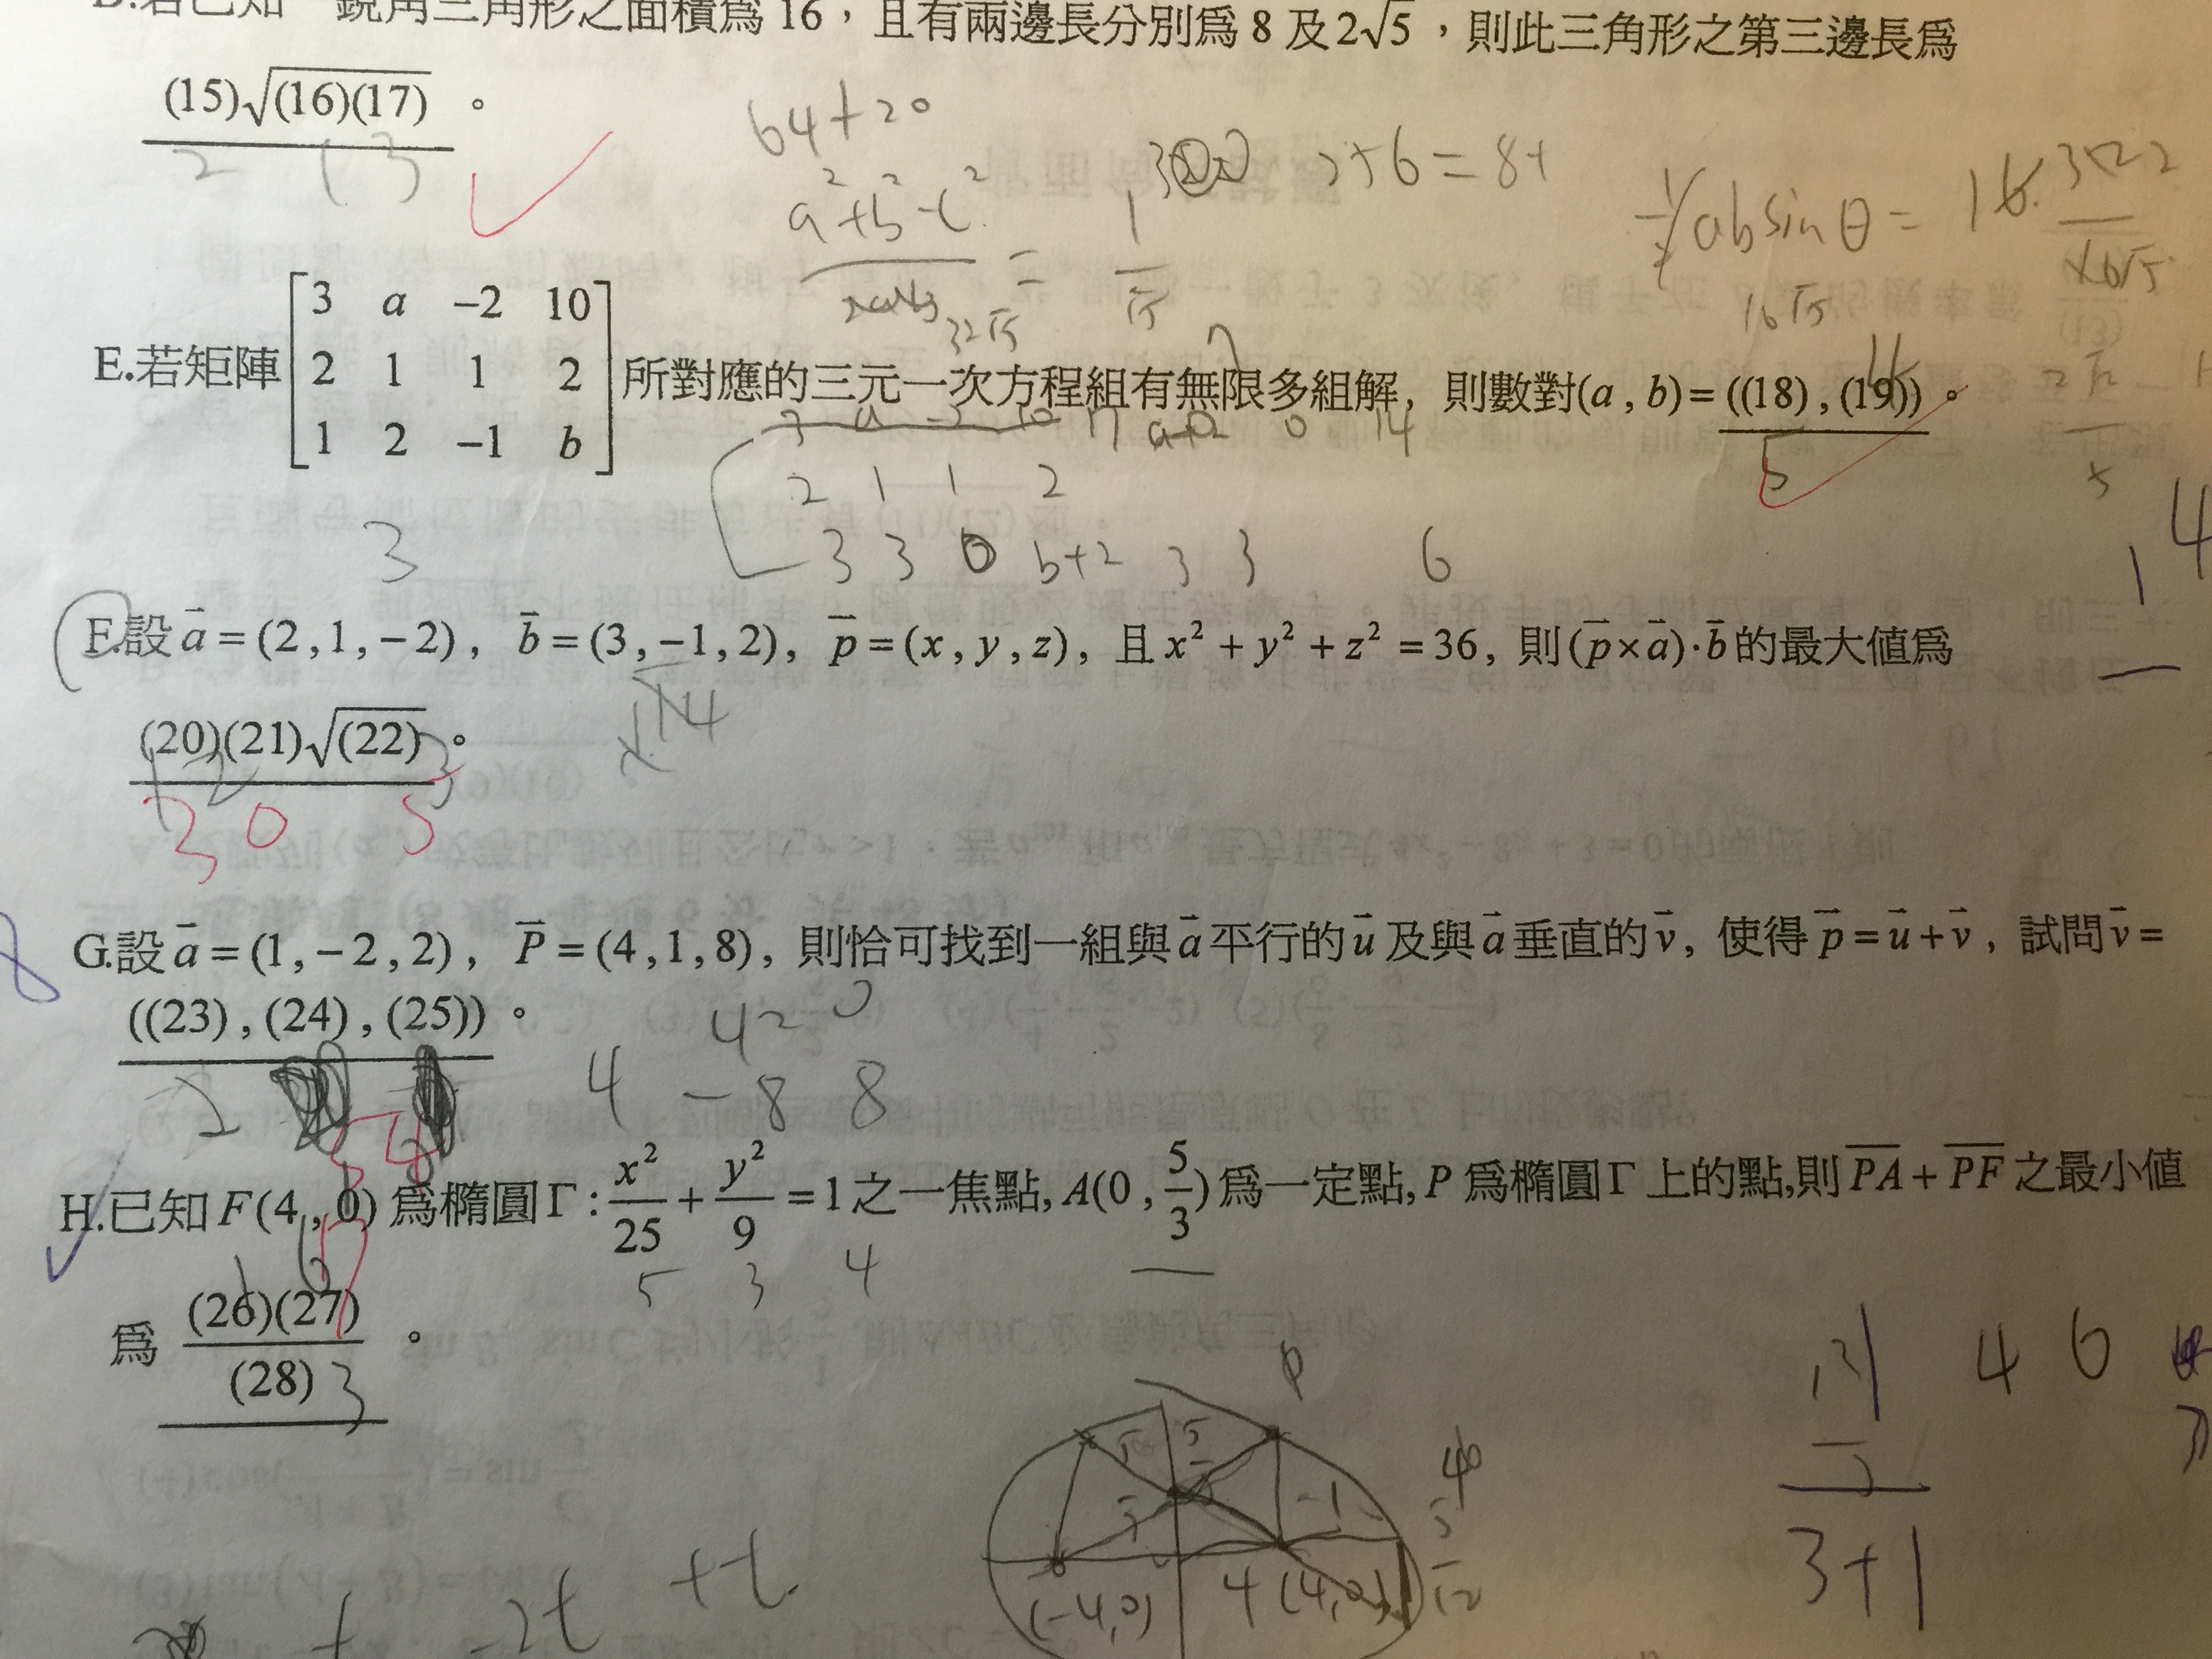 D.若已知一銳角三角形之面積為 16，且有兩邊長分別為 8 及 2√5，則此三角形之第三邊長為
(15)√(16)(17) 。
2 1 3
64+20
a²+b²-c²
= 1
√5
½ab sin θ = 16.
16√5
E.若矩陣
3 a −2 10
2 1 1 2
1 2 −1 b
所對應的三元一次方程組有無限多組解，則數對(a , b) = ((18) , (19)) 。
3 a -2 10 7 a+2 0 14
2 1 1 2
3 3 0 b+2 3 3 6
3
5
F.設 a = (2 , 1 , −2)， b = (3 , −1 , 2)， p = (x , y , z)，且 x² + y² + z² = 36，則 (p×a)·b 的最大值為
(20)(21)√(22) 。
1 2 3
3 0 5
G.設 a = (1 , −2 , 2)， P = (4 , 1 , 8)，則恰可找到一組與 a 平行的 u 及與 a 垂直的 v，使得 p = u + v，試問 v =
((23) , (24) , (25)) 。
2 5 4
4 2 0
4 -8 8
H.已知 F(4 , 0) 為橢圓 Γ : x²/25 + y²/9 = 1 之一焦點, A(0 , 5/3) 為一定點, P 為橢圓 Γ 上的點,則 PA + PF 之最小值
5 3 4
為 (26)(27)/(28) 。
1 6 7
3
4 6
3+1
P
(-4,0) 4 (4,0)
t -2t +t